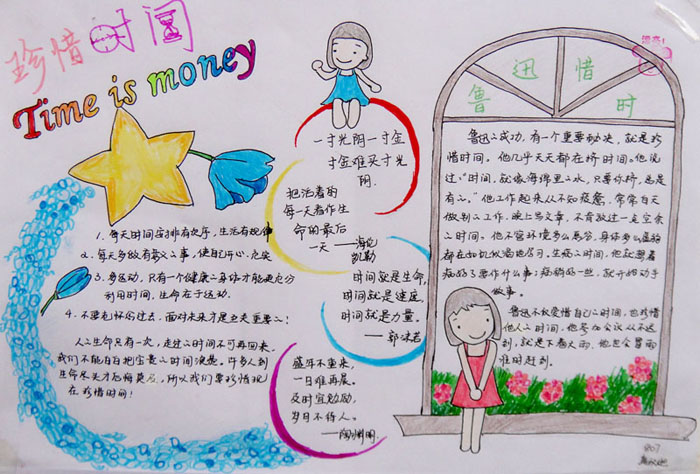 珍惜时间
Time is money
1. 每天时间安排有次序,生活有规律
2. 每天多做有意义之事,使自己开心,充实
3. 多运动,只有一个健康之身体才能更充分
利用时间,生命在于运动.
4. 不要老怀念过去,面对未来才是至关重要之!
人之生命只有一次,走过之时间不可再回来,
我们不能白白把宝贵之时间浪费。许多人到
生命尽头才后悔莫及,所以我们要珍惜现
在 珍惜时间!
一寸光阴一寸金
寸金难买寸光
阴.
把活着的
每一天看作生
命的最后
一天 ——海伦
凯勒
时间就是生命,
时间就是速度,
时间就是力量.
——郭沫若
盛年不重来,
一日难再晨。
及时宜勉励,
岁月不待人。
——陶渊明
鲁迅惜时
鲁迅之成功,有一个重要秘决,就是珍
惜时间。他几乎天天都在挤时间。他说
过:“时间,就像海绵里之水,只要你挤,总是
有之。”他工作起来从不知疲倦,常常白天
做别之工作,晚上写文章,不肯放过一点空余
之时间。他不管环境多么恶劣,身体多么
都在如饥似渴地学习。生病之时间,他就想着
病好了要作什么事;病稍好一些,就开始动手
做事。
鲁迅不仅爱惜自己之时间,也珍惜
他人之时间,他参加会议从不迟
到,就是下着大雨,他也会冒雨
准时赶到。
807